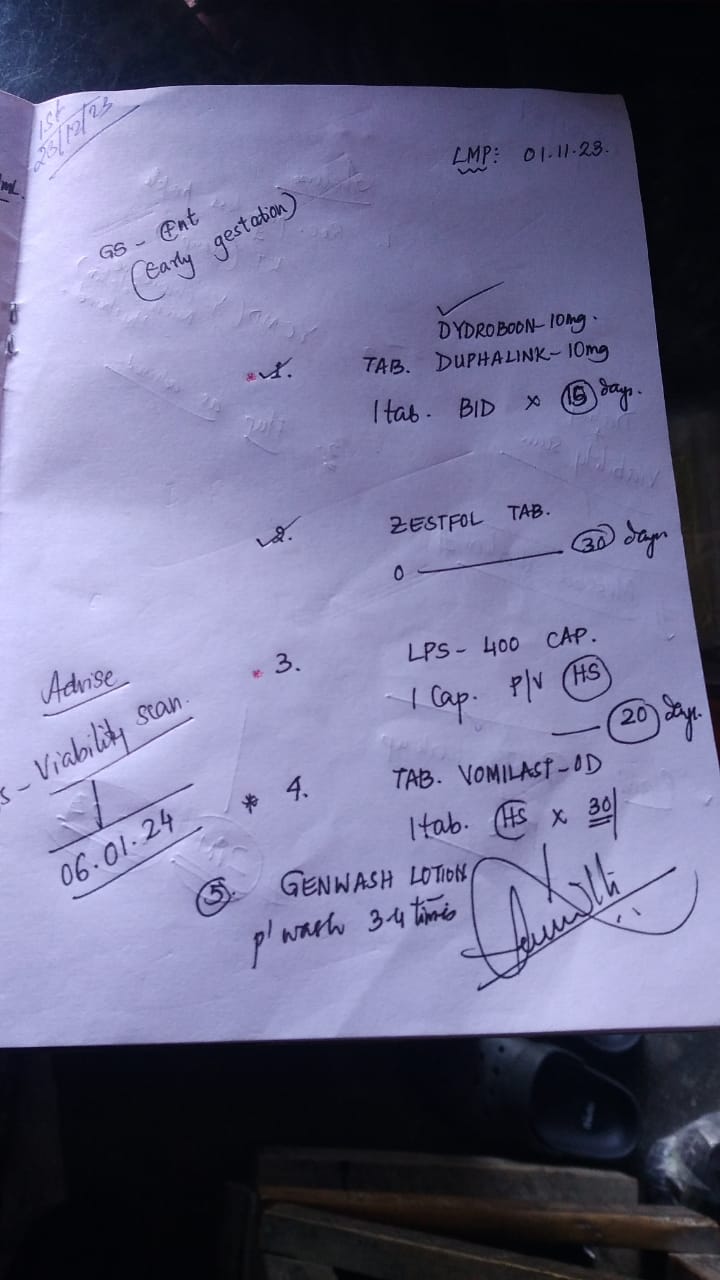 1st
23/12/23
LMP: 01.11.23.
GS - ⊕nt
(Early gestation)
DYDROBOON-10mg.
1. TAB. DUPHALINK-10mg
1 tab. BID x 15 days.
2. ZESTFOL TAB.
0 — 30 days
3. LPS-400 CAP.
1 Cap. P/V HS
— 20 days.
Advise
Viability scan.
↓
06.01.24
* 4. TAB. VOMILAST-OD
1 tab. HS x 30
5. GENWASH LOTION
p' wash 3-4 times